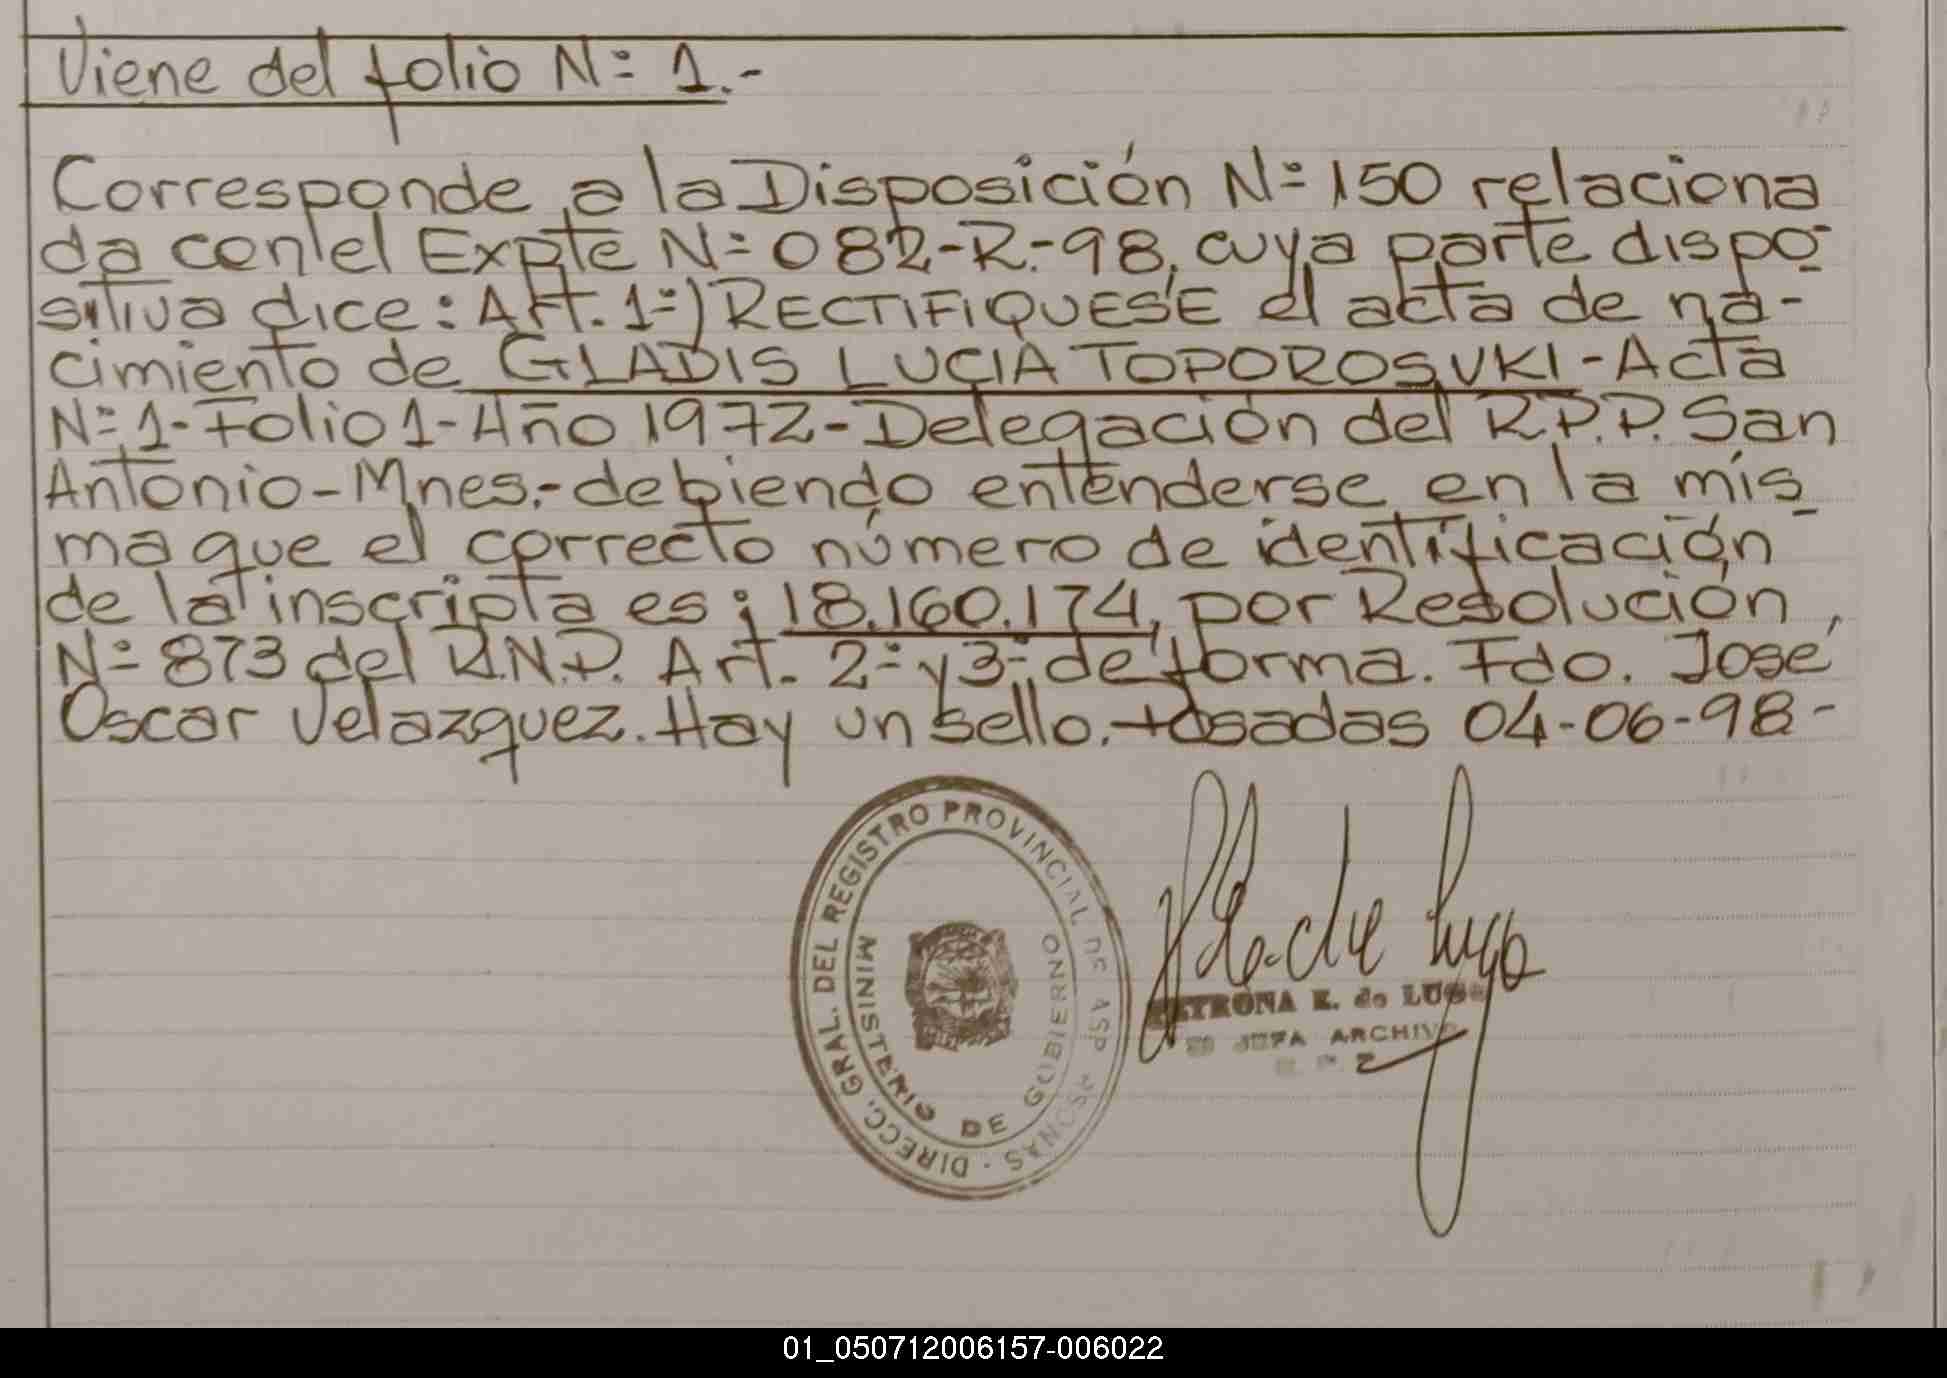 Viene del folio Nº 1.-
Corresponde a la Disposición Nº 150 relaciona
da con el Expte Nº 082-R.-98, cuya parte dispo-
sitiva dice: Art. 1º) RECTIFIQUESE el acta de na-
cimiento de GLADIS LUCIA TOPOROSUKI - Acta
Nº 1 - Folio 1 - Año 1972 - Delegación del R.P.P. San
Antonio - Mnes.- debiendo entenderse en la mis
ma que el correcto número de identificación
de la inscripta es: 18.160.174, por Resolución
Nº 873 del R.N.P. Art. 2º y 3º de forma. Fdo. José
Oscar Velazquez. Hay un sello. Posadas 04-06-98-
DIRECC. GRAL. DEL REGISTRO PROVINCIAL DE
MINISTERIO DE GOBIERNO
PETRONA E. de LUGO
JEFA ARCHIVO
01_050712006157-006022